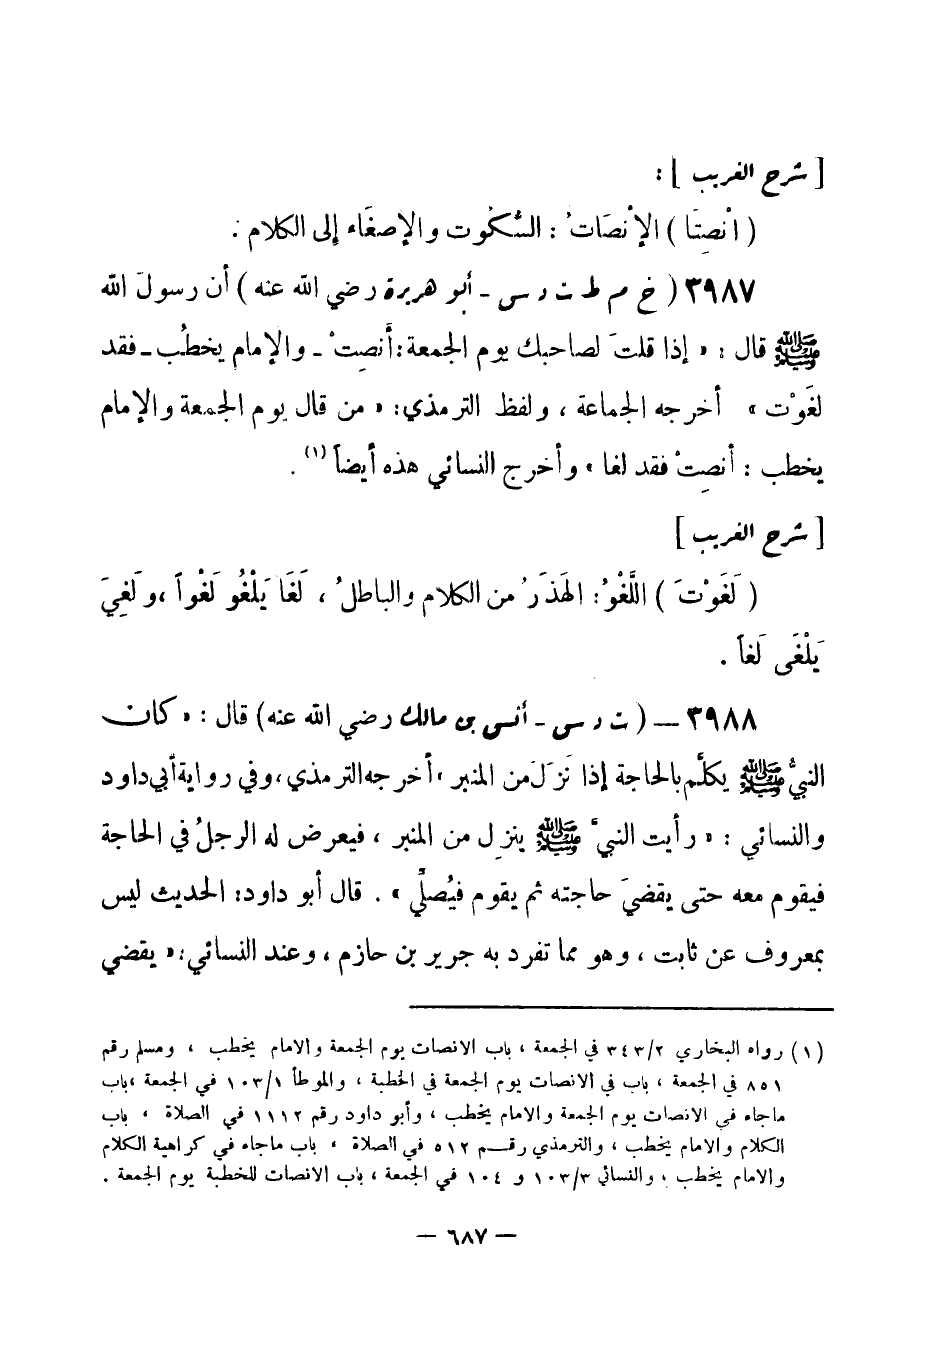 [ شرح الغريب ] :
( انْصِتَا ) الإنْصَاتُ : السُّكُوت والإصغَاء إلى الكلام .
٣٩٨٧ ( خ م ط ت د س - أبو هريرة رضي الله عنه ) أن رسولَ الله
ﷺ قال : « إذا قلتَ لصاحبك يوم الجمعة : أَنصِتْ ـ والإمام يخطُب ـ فقد
لغَوْت » أخرجه الجماعة ، ولفظ الترمذي : « من قال يوم الجمعة والإمام
يخطب : أنصِتْ فقد لغا » وأخرج النسائي هذه أيضاً (١) .
[ شرح الغريب ]
( لَغَوْتَ ) اللَّغْوُ : الهَذَرُ من الكلام والباطلُ ، لَغَا يَلْغُو لَغْواً ، ولَغِيَ
يَلْغَى لَغاً .
٣٩٨٨ — ( ت د س - أنس بن مالك رضي الله عنه ) قال : « كان
النبيُّ ﷺ يكلَّم بالحاجة إذا نَزَلَ من المنبر » أخرجه الترمذي ، وفي رواية أبي داود
والنسائي : « رأيت النبيَّ ﷺ ينزِل من المنبر ، فيعرض له الرجلُ في الحاجة
فيقوم معه حتى يقضيَ حاجته ثم يقوم فيُصلِّي » . قال أبو داود : الحديث ليس
بمعروف عن ثابت ، وهو مما تفرد به جرير بن حازم ، وعند النسائي : « يقضي
(١) رواه البخاري ٣٤٣/٢ في الجمعة ، باب الانصات يوم الجمعة والامام يخطب ، ومسلم رقم
٨٥١ في الجمعة ، باب في الانصات يوم الجمعة في الخطبة ، والموطأ ١٠٣/١ في الجمعة ، باب
ماجاء في الانصات يوم الجمعة والامام يخطب ، وأبو داود رقم ١١١٢ في الصلاة ، باب
الكلام والامام يخطب ، والترمذي رقم ٥١٢ في الصلاة ، باب ماجاء في كراهية الكلام
والامام يخطب ، والنسائي ١٠٣/٣ و ١٠٤ في الجمعة ، باب الانصات للخطبة يوم الجمعة .
— ٦٨٧ —